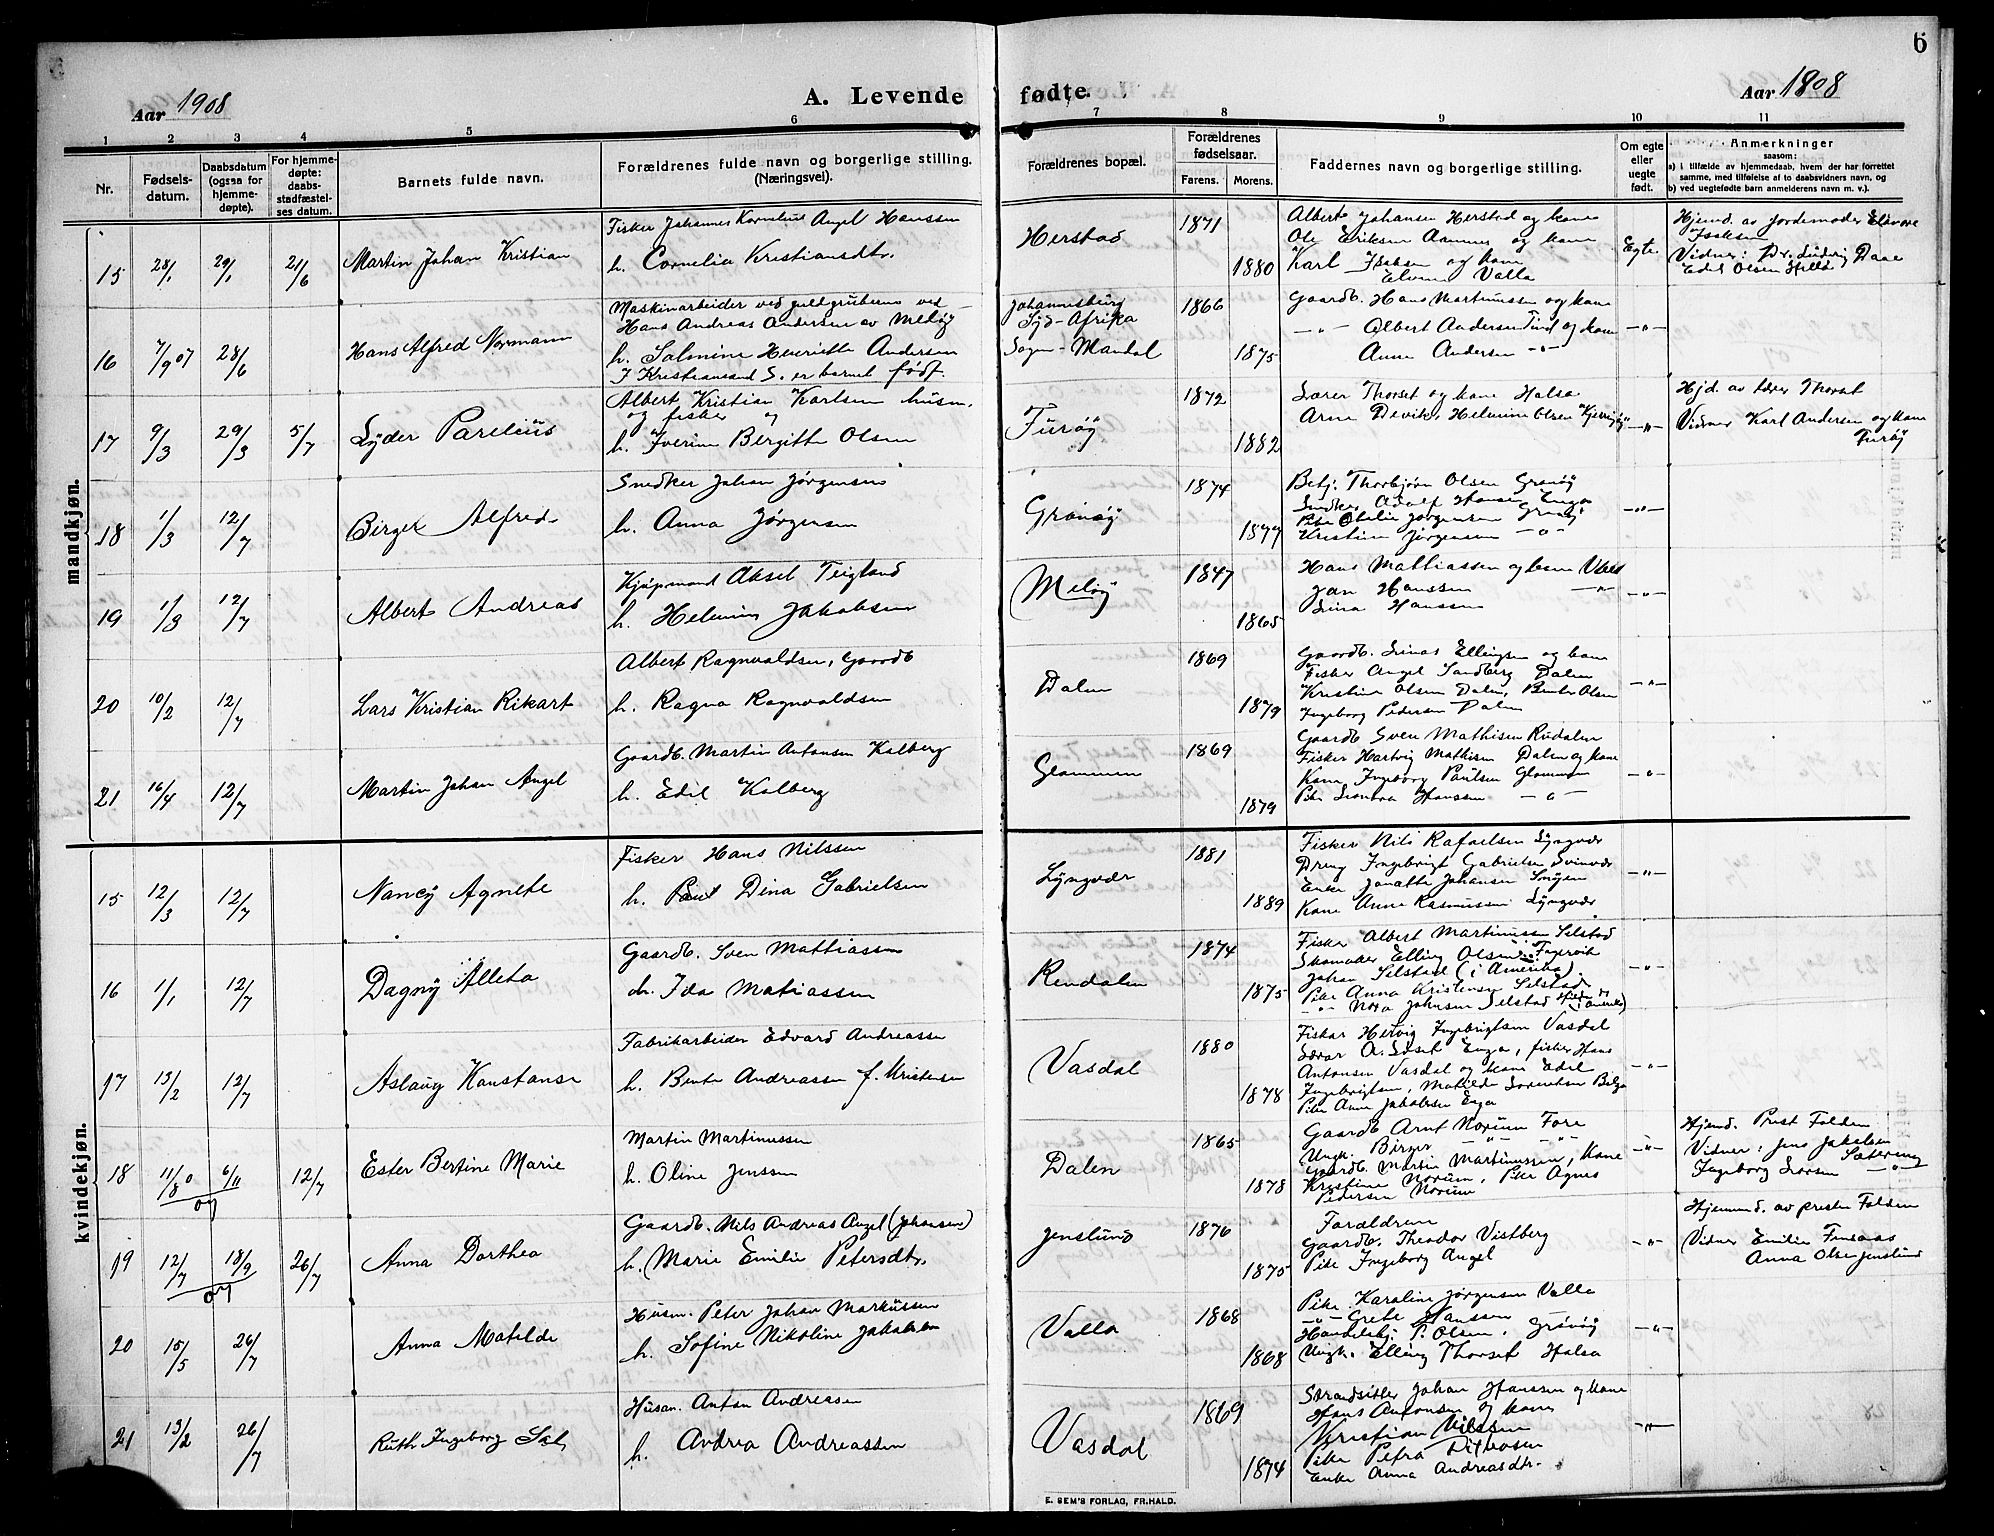 6
Aar 1908
A. Levende fødte.
Aar 1908
1 2 3 4 5 6 7 8 9 10 11
Nr.
Fødsels-
datum.
Daabsdatum
(ogsaa for
hjemme-
døpte).
For hjemme-
døpte:
daabs-
stadfæstel-
ses datum.
Barnets fulde navn.
Forældrenes fulde navn og borgerlige stilling.
(Næringsvei).
Forældrenes bopæl.
Forældrenes
fødselsaar.
Farens. Morens.
Faddernes navn og borgerlige stilling.
Om egte
eller
uegte
født.
Anmerkninger
saasom:
a) i tilfælde av hjemmedaab, hvem der har forrettet
samme, med tilføielse af to daabsvidners navn, og
b) ved uegtefødte barn anmelderens navn m. v.).
mandkjøn.
15 28/1 29/1 21/6 Martin Johan Kristian
Fisker Johannes Kornelius Angel Hanssen
h. Cornelia Kristiansdtr.
Herstad
1871
1880
Albert Johansen Herstad og kone
Ole Eriksen Aamnes og kone
Karl Isaksen og kone
Elvine Valla
Egte.
Hjemd. av Jordemoder Elevore
Isaksen
Vidner: Dr. Ludvig Daae
Edel Olsen Hilla
16 7/9 07 28/6 Hans Alfred Normann
Maskinarbeider ved guldgruberne ved
Hans Andreas Andersen av Meløy
h. Salmine Henriette Andersen
I Kristiansand S. er barnet født.
Johannesburg
Syd-Afrika
Sogn-Mandal
1866
1875
Gaardb. Hans Martinussen og kone
—"— Albert Andersen Tind og kone
Anna Andersen —"—
—"—
17 9/3 29/3 5/7 Lyder Parelius
Albert Kristian Karlsen husm.
og fisker og
h. Iverine Bergitte Olsen
Furøy
1872
1882
Lærer Thorset og kone Halsa
Arne Devik, Helmine Olsen
—"—
Hjd. av lærer Thorset
Vidner Karl Andersen og kone
Furøy
18 1/3 12/7 Birger Alfred
Snedker Johan Jørgensen
h. Anna Jørgensen
Grønøy
1874
1877
Betj. Thorbjørn Olsen Grønøy
Snedker Adolf Hansen Enga
Pike Otelie Jørgensen Grønøy
Kristine Jørgensen —"—
—"—
19 1/3 12/7 Albert Andreas
Kjøpmand Aksel Teigland
h. Helmine Jakobsen
Meløy
1847
1865
Hans Mathiassen og kone
Jon Hanssen —"—
Lina Hanssen
—"—
20 10/2 12/7 Lars Kristian Rikart
Albert Ragnvaldsen, Gaardb
h. Ragna Ragnvaldsen
Dalen
1869
1879
Gaardb. Linas Ellingsen og kone
Fisker Angel Sandberg Dalen
Kristine Olsen Dalen, Bente Olsen
Ingeborg Pedersen Dalen
—"—
21 16/4 12/7 Martin Johan Angel
Gaardb. Martin Antonsen Kalberg
h. Edil Kalberg
Glommen
1869
1879
Gaardb Sven Mathisen Rudalen
Fisker Hartvig Mathisen Dalen og kone
Kone Ingeborg Paulsen Glommen
Pike Hanssen —"—
—"—
kvindekjøn.
15 12/3 12/7 Nancy Agnete
Fisker Hans Nilssen
h. Dina Gabrielsen
Lyngvær
1881
1889
Fisker Nils Rafaelsen Lyngvær
Dreng Ingebrigt Gabrielsen Svinvær
Enke Jonatte Johansen Smyen
Kone Anne Rasmussen Lyngvær
—"—
16 1/1 12/7 Dagny Alleta
Gaardb. Sven Mattiassen
h. Ida Matiassen
Rendalen
1874
1875
Fisker Albert Martinussen Selstad
Skomaker Elling Olsen Ingervik
Johan Selstad (i Amerika)
Pike Anna Kristensen Selstad
—"— Nora Johnsen Selstad
—"—
17 13/2 12/7 Aslaug Konstanse
Fabrikarbeider Edvard Andreassen
h. Bente Andreassen f. Kristensen
Vasdal
1880
1878
Fisker Hertvig Ingebrigtsen Vasdal
Lærar A. Løset Enga, fisker Hans
Antonsen Vasdal og kone Edel
Ingebrigtsen, Matilde Lorentsen Bolga
Pike Anna Jakobsen Enga
—"—
18 11/8 07 6/11 12/7 Ester Bertine Marie
Martin Martinussen
h. Oline Jenssen
Dalen
1865
1878
Gaardb Arnt Norum Fore
Ungk. Birger —"— —"—
Gaardb. Martin Martinussen, Kone
Kristine Norum, Pike Agnes
Pedersen Norum
—"—
Hjemd. Prest Folden
Vidner: Jens Jakobsen
Ingeborg Larsen Sætering
—"—
19 12/7 18/9 07 26/7 Anna Dorthea
Gaardb. Nils Andreas Angel (Johansen)
h. Marie Emilie Petersdtr.
Jenslund
1876
1875
Forældrene
Gaardb. Theodor Vistberg
Pike Ingeborg Angel
—"—
Hjemmed. av presten Folden
Vidner Emilie
Anna Olsen Jenslund
20 15/5 26/7 Anna Matelde
Husm. Peter Johan Markussen
h. Sofine Nikoline Jakobsen
Valla
1868
1868
Pike. Karoline Jørgensen Valla
—"— Grete Hanssen
Handelsbj. P. Olsen, Grønøy
Ungk. Elling Thorset Halsa
—"—
21 13/2 26/7 Ruth Ingeborg
Husm. Anton Andreassen
h. Andrea Andreassen
Vasdal
1869
1874
Strandsitter Johan Hanssen og kone
Hans Antonsen og kone
Kristian Nilssen
Pike Petra
Enke Anna Andreasdtr.
—"—
E. SEM'S FORLAG, FR.HALD.